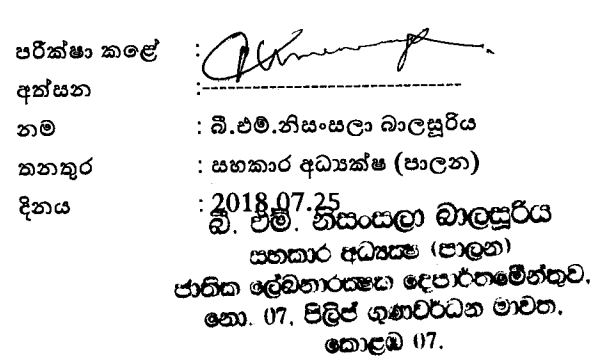 පරීක්ෂා කළේ :
අත්සන :-----------------------------------
නම : බී.එම්.නිසංසලා බාලසූරිය
තනතුර : සහකාර අධ්‍යක්ෂ (පාලන)
දිනය : 2018.07.25
බී. එම්. නිසංසලා බාලසූරිය
සහකාර අධ්‍යක්ෂ (පාලන)
ජාතික ලේඛනාරක්ෂක දෙපාර්තමේන්තුව,
නො. 07, පිලිප් ගුණවර්ධන මාවත,
කොළඹ 07.